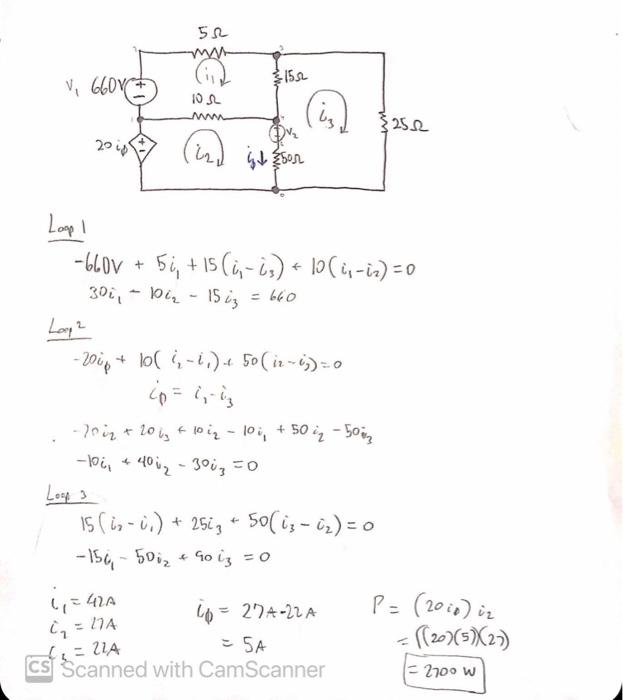 5Ω
V₁ 660V
i₁
15Ω
10Ω
i₃
25Ω
V₂
20 iϕ
i₂
iϕ↓
50Ω
Loop 1
-660V + 5i₁ + 15(i₁-i₃) + 10(i₁-i₂) = 0
30i₁ - 10i₂ - 15i₃ = 660
Loop 2
-20iϕ + 10(i₂-i₁) + 50(i₂-i₃) = 0
iϕ = i₂-i₃
-20i₂ + 20i₃ + 10i₂ - 10i₁ + 50i₂ - 50i₃
-10i₁ + 40i₂ - 30i₃ = 0
Loop 3
15(i₃-i₁) + 25i₃ + 50(i₃-i₂) = 0
-15i₁ - 50i₂ + 90i₃ = 0
i₁ = 42A iϕ = 27A-22A P = (20iϕ)i₂
i₂ = 27A = 5A = ((20)(5)(27)
i₃ = 22A = 2700 W
CS Scanned with CamScanner